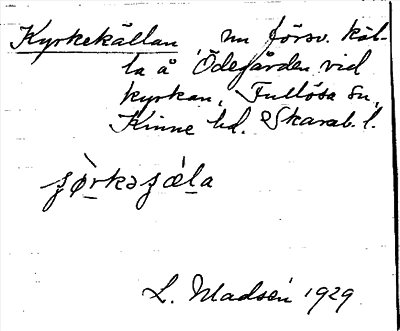 Kyrkekällan, nu försv. käl-
la å Ödegården vid
kyrkan, Fullösa sn,
Kinne hd. Skarab. l.
L. Madsén 1929